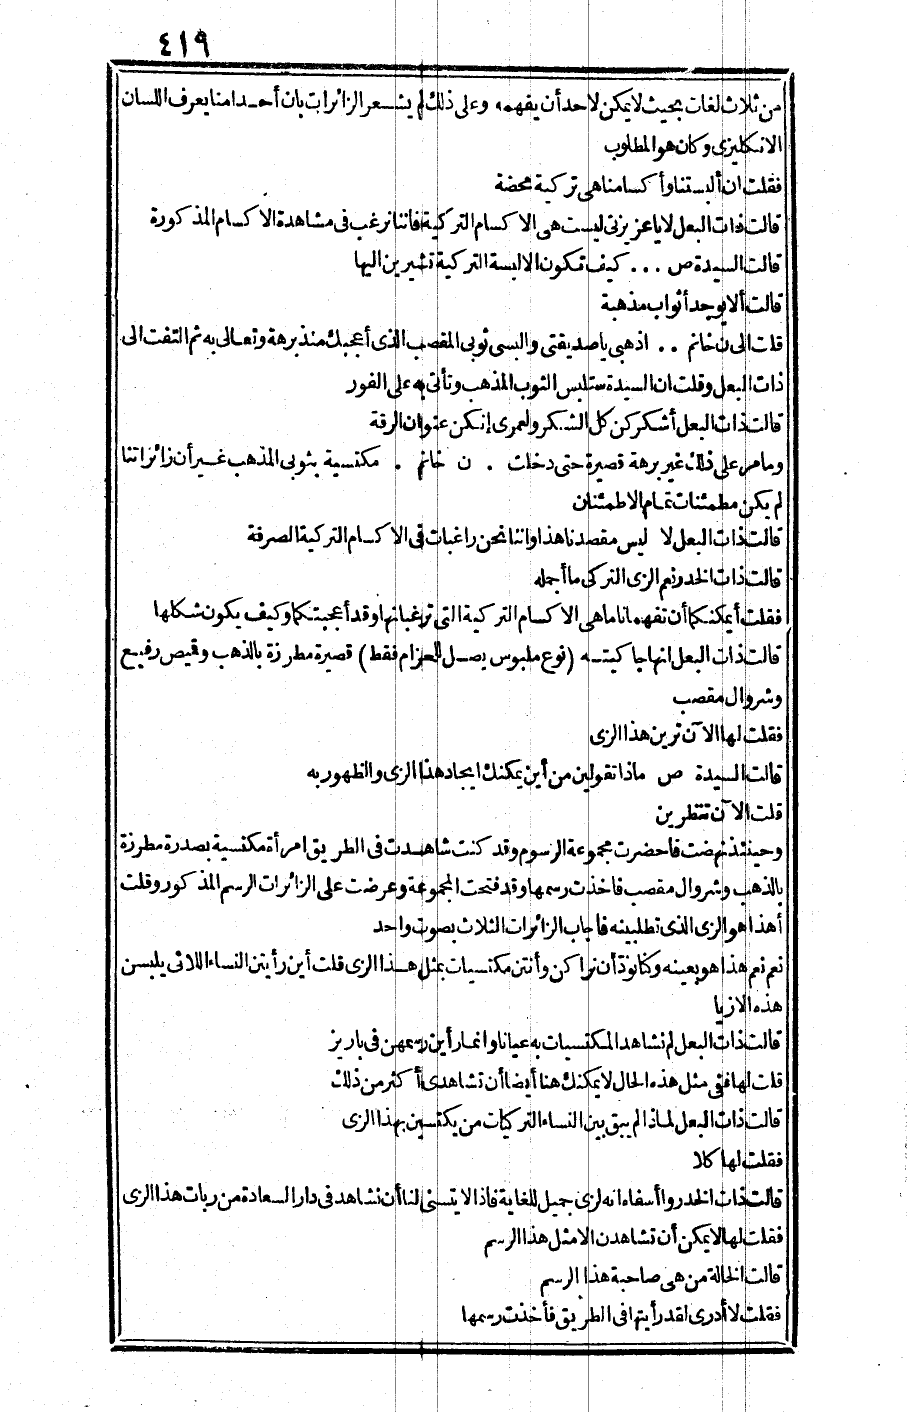 ٤١٩
من ثلاث لغات بحيث لا يمكن لاحد أن يفهمه وعلى ذلك لم يشعر الزائرات بان أحدا منا يعرف اللسان
الانكليزى وكان هو المطلوب
فقلت ان ألبستنا وأكسامنا هى تركية محضة
قالت ذات البعل لا ياعزيزتى ليست هى الاكسام التركية فاننا نرغب فى مشاهدة الاكسام المذكورة
قالت السيدة ص ... كيف تكون الالبسة التركية تشيرين اليها
قالت ألا يوجد أثواب مذهبة
قلت الى ن خانم .. اذهبى ياصديقتى والبسى ثوبى المقصب الذى أعجبك منذ برهة وتعالى به ثم التفت الى
ذات البعل وقلت ان السيدة ستلبس الثوب المذهب وتأتى به على الفور
قالت ذات البعل أشكركن كل الشكر ولعمرى انكن عنوان الرقة
وما مر على ذلك غير برهة قصيرة حتى دخلت . ن خانم . مكتسية بثوبى المذهب غير أن زائراتنا
لم يكن مطمئنات تمام الاطمئنان
قالت ذات البعل لا ليس مقصدنا هذا واننا نحن راغبات فى الاكسام التركية الصرفة
قالت ذات الخدر نم الزى التركى ما أجمله
فقلت أيمكنكما أن تفهمانا ما هى الاكسام التركية التى ترغبانها وقد أعجبتكما وكيف يكون شكلها
قالت ذات البعل انها جاكيته (نوع ملبوس يصل للحزام فقط) قصيرة مطرزة بالذهب وقميص رفيع
وشروال مقصب
فقلت لها الآن ترين هذا الزى
قالت السيدة ص ماذا تقولين من أين يمكنك ايجاد هذا الزى والظهور به
قلت الآن تنظرين
وحينئذ نهضت فاحضرت مجموعة الرسوم وقد كنت شاهدت فى الطريق امرأة مكتسية بصدرة مطرزة
بالذهب وشروال مقصب فاخذت رسمها وقد فتحت المجموعة وعرضت على الزائرات الرسم المذكور وقلت
أهذا هو الزى الذى تطلبينه فأجاب الزائرات الثلاث بصوت واحد
نعم نعم هذا هو بعينه وكنا نود أن نراكن وأنتن مكتسيات بمثل هذا الزى قلت أين رأيتن النساء اللاتى يلبسن
هذه الازيا
قالت ذات البعل لم نشاهد المكتسيات به عيانا وانما رأين رسمهن فى باريز
قلت لها ففى مثل هذه الحال لا يمكنك هنا أيضا أن تشاهدى أكثر من ذلك
قالت ذات البعل لماذا لم يبق بين النساء التركيات من يكتسين بهذا الزى
فقلت لها كلا
قالت ذات الخدر وا أسفاه انه لزى جميل للغاية فاذا لا يتسنى لنا أن نشاهد فى دار السعادة من ربات هذا الزى
فقلت لها لا يمكن أن تشاهدن الا مثل هذا الرسم
قالت الخالة من هى صاحبة هذا الرسم
فقلت لا أدرى لقد رأيتها فى الطريق فأخذت رسمها